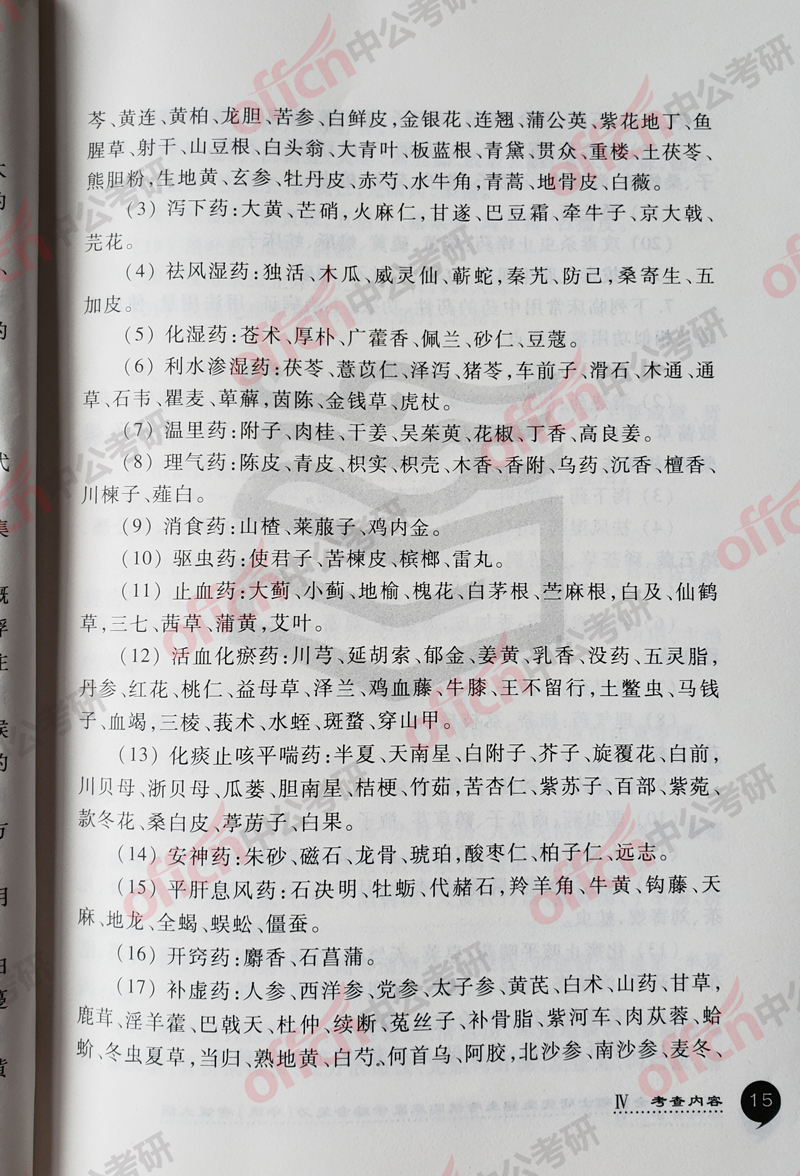 芩、黄连、黄柏、龙胆、苦参、白鲜皮,金银花、连翘、蒲公英、紫花地丁、鱼
腥草、射干、山豆根、白头翁、大青叶、板蓝根、青黛、贯众、重楼、土茯苓、
熊胆粉,生地黄、玄参、牡丹皮、赤芍、水牛角,青蒿、地骨皮、白薇。
(3) 泻下药:大黄、芒硝,火麻仁,甘遂、巴豆霜、牵牛子、京大戟、
芫花。
(4) 祛风湿药:独活、木瓜、威灵仙、蕲蛇,秦艽、防己,桑寄生、五
加皮。
(5) 化湿药:苍术、厚朴、广藿香、佩兰、砂仁、豆蔻。
(6) 利水渗湿药:茯苓、薏苡仁、泽泻、猪苓,车前子、滑石、木通、通
草、石韦、瞿麦、萆薢,茵陈、金钱草、虎杖。
(7) 温里药:附子、肉桂、干姜、吴茱萸、花椒、丁香、高良姜。
(8) 理气药:陈皮、青皮、枳实、枳壳、木香、香附、乌药、沉香、檀香、
川楝子、薤白。
(9) 消食药:山楂、莱菔子、鸡内金。
(10) 驱虫药:使君子、苦楝皮、槟榔、雷丸。
(11) 止血药:大蓟、小蓟、地榆、槐花、白茅根、苎麻根,白及、仙鹤
草,三七、茜草、蒲黄,艾叶。
(12) 活血化瘀药:川芎、延胡索、郁金、姜黄、乳香、没药、五灵脂,
丹参、红花、桃仁、益母草、泽兰、鸡血藤、牛膝、王不留行,土鳖虫、马钱
子、血竭,三棱、莪术、水蛭、斑蝥、穿山甲。
(13) 化痰止咳平喘药:半夏、天南星、白附子、芥子、旋覆花、白前,
川贝母、浙贝母、瓜蒌、胆南星、桔梗、竹茹,苦杏仁、紫苏子、百部、紫菀、
款冬花、桑白皮、葶苈子、白果。
(14) 安神药:朱砂、磁石、龙骨、琥珀,酸枣仁、柏子仁、远志。
(15) 平肝息风药:石决明、牡蛎、代赭石,羚羊角、牛黄、钩藤、天
麻、地龙、全蝎、蜈蚣、僵蚕。
(16) 开窍药:麝香、石菖蒲。
(17) 补虚药:人参、西洋参、党参、太子参、黄芪、白术、山药、甘草,
鹿茸、淫羊藿、巴戟天、杜仲、续断、菟丝子、补骨脂、紫河车、肉苁蓉、蛤
蚧、冬虫夏草,当归、熟地黄、白芍、何首乌、阿胶,北沙参、南沙参、麦冬、
Ⅳ 考查内容 15
offcn中公考研